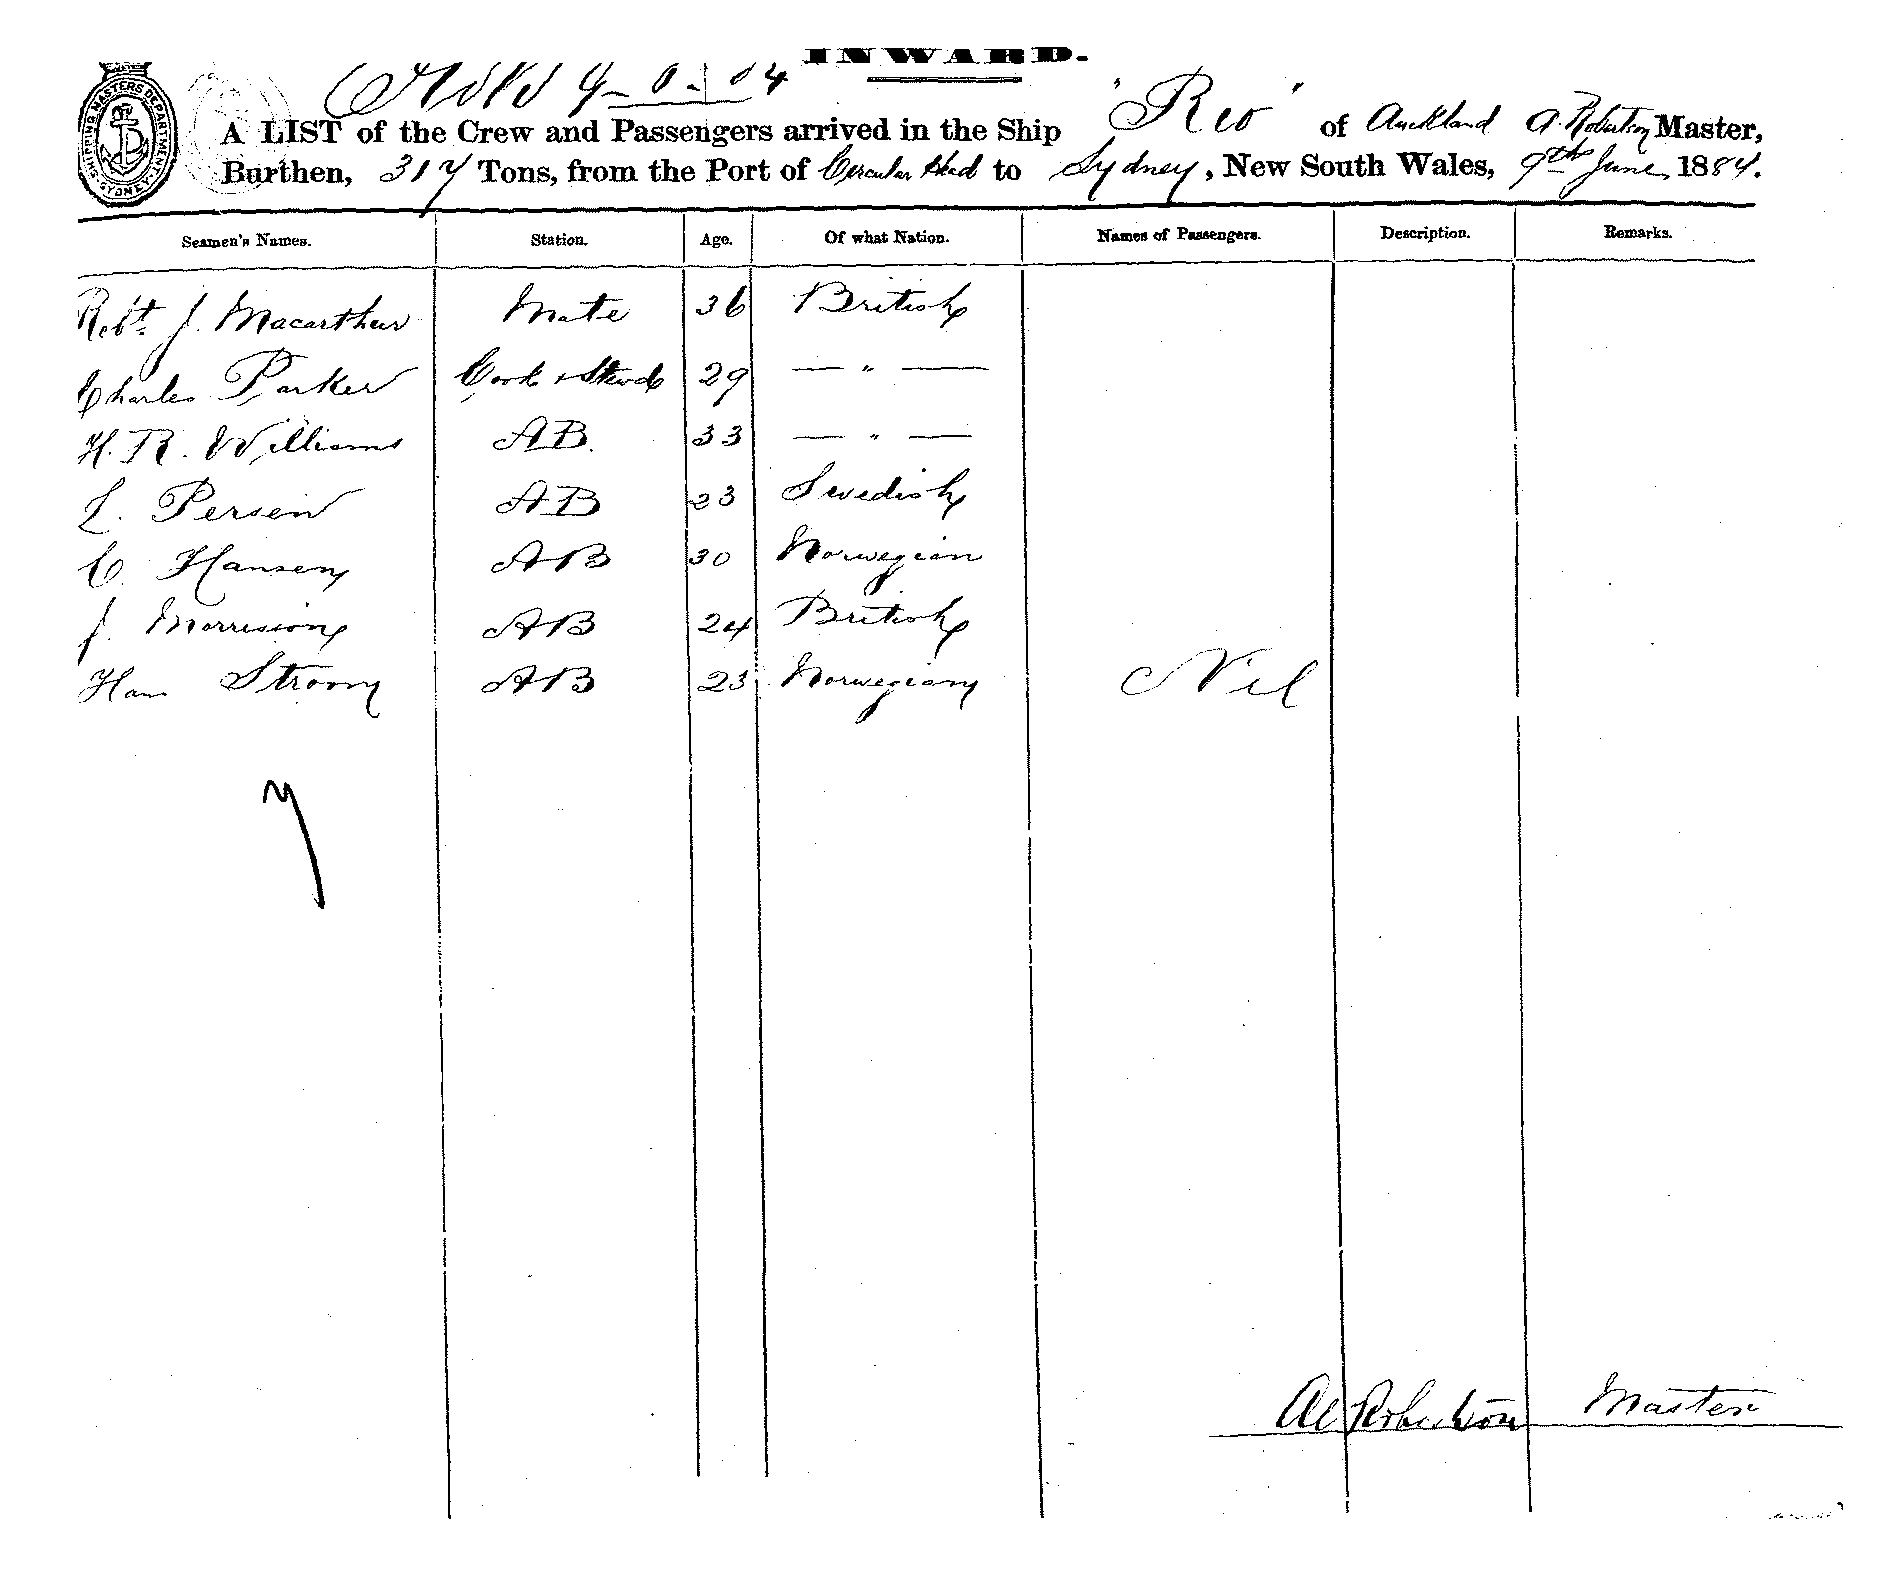 INWARD.
A LIST of the Crew and Passengers arrived in the Ship "Rio" of Auckland A. Robertson Master,
Burthen, 317 Tons, from the Port of Circular Head to Sydney, New South Wales, 9th June 1884.
SHIPPING MASTERS DEPARTMENT SYDNEY
Seamen's Names. Station. Age. Of what Nation. Names of Passengers. Description. Remarks.
Robt. J. Macarthur Mate 36 British
Charles Parker Cook & Stwd 29 — " —
H. R. Williams AB. 33 — " —
L. Persen AB 23 Swedish
C Hansen AB 30 Norwegian
J. Morrison AB 24 British
Hans Strom AB 23 Norwegian Nil
7
Al Robertson Master